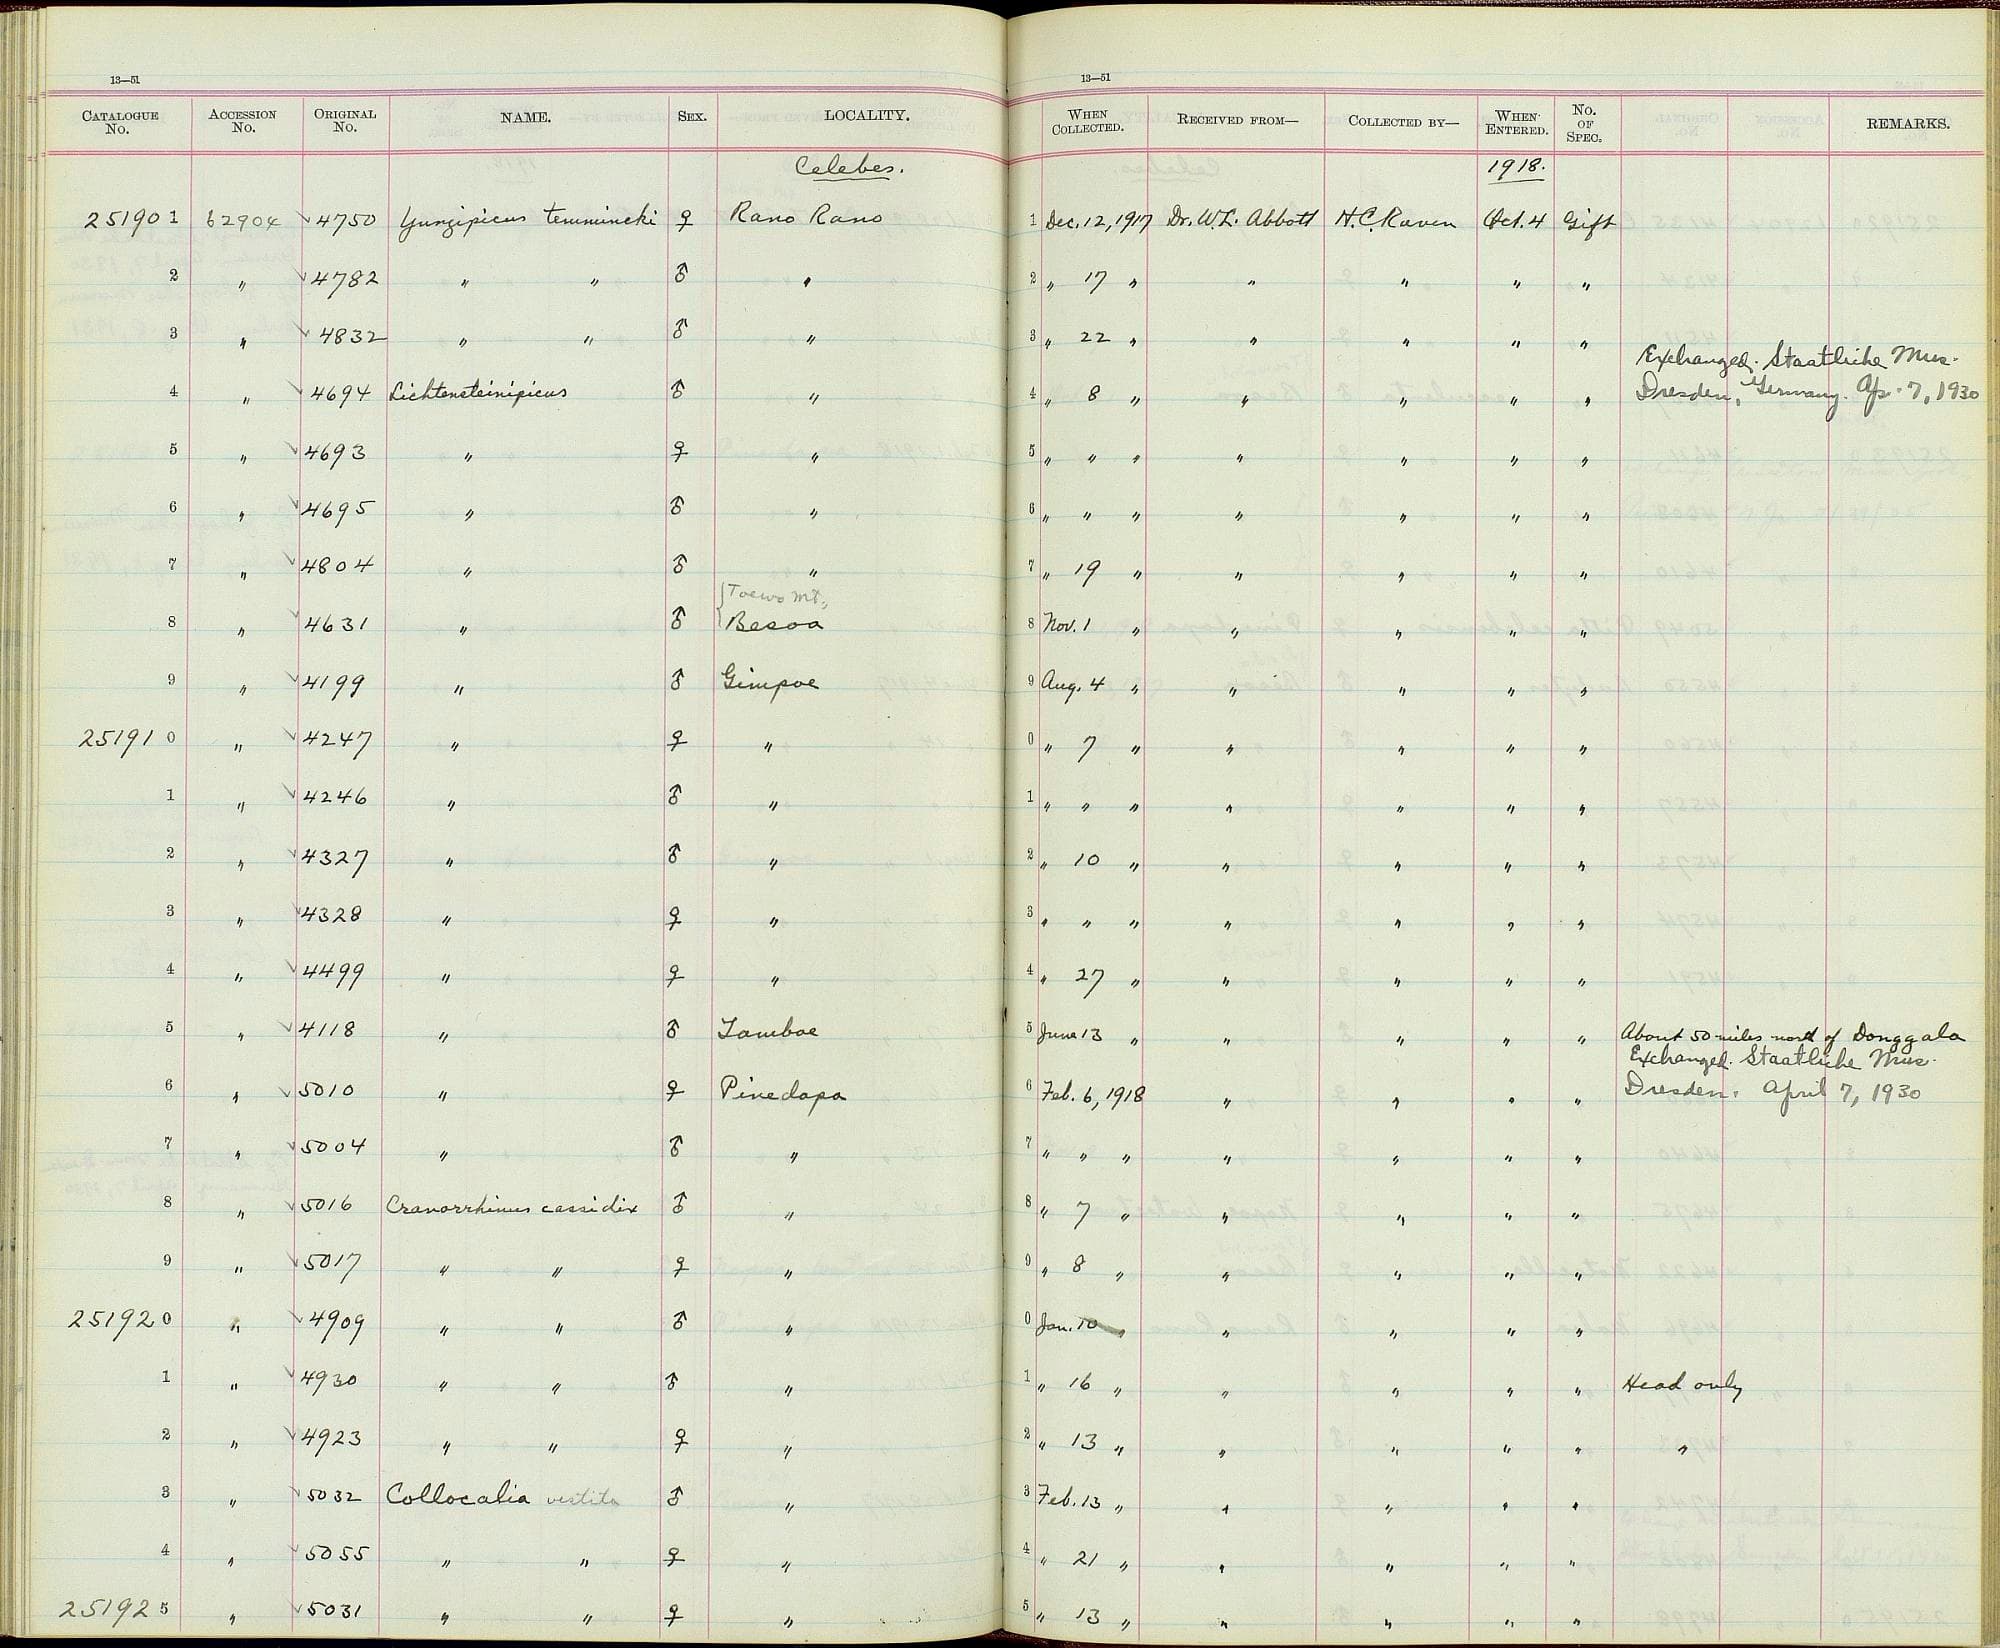 13—51
13—51
CATALOGUE No. ACCESSION No. ORIGINAL No. NAME. SEX. LOCALITY. WHEN COLLECTED. RECEIVED FROM— COLLECTED BY— WHEN ENTERED. No. OF SPEC. REMARKS.
Celebes. 1918.
25190 1 62904 ✓ 4750 Yungipicus temmincki ♀ Rano Rano 1 Dec. 12, 1917 Dr. W. L. Abbott H. C. Raven Oct. 4 Gift
2 " ✓ 4782 " " ♂ " 2 " 17 " " " " "
3 " ✓ 4832 " " ♂ " 3 " 22 " " " " "
Exchanged. Staatliche Mus.
4 " ✓ 4694 Lichtensteinipicus ♂ " 4 " 8 " " " " " Dresden, Germany. Ap. 7, 1930
5 " ✓ 4693 " ♀ " 5 " " " " " " "
6 " ✓ 4695 " ♂ " 6 " " " " " " "
7 " ✓ 4804 " ♂ " 7 " 19 " " " " "
{Toewo Mt.,
8 " ✓ 4631 " ♂ Besoa 8 Nov. 1 " " " " "
9 " ✓ 4199 " ♂ Gimpoe 9 Aug. 4 " " " " "
25191 0 " ✓ 4247 " ♀ " 0 " 7 " " " " "
1 " ✓ 4246 " ♂ " 1 " " " " " " "
2 " ✓ 4327 " ♂ " 2 " 10 " " " " "
3 " ✓ 4328 " ♀ " 3 " " " " " " "
4 " ✓ 4499 " ♀ " 4 " 27 " " " " "
5 " ✓ 4118 " ♂ Tamboe 5 June 13 " " " " " About 50 miles north of Donggala
Exchanged. Staatliche Mus.
6 " ✓ 5010 " ♀ Pinedapa 6 Feb. 6, 1918 " " " " Dresden. April 7, 1930
7 " ✓ 5004 " ♂ " 7 " " " " " " "
8 " ✓ 5016 Cranorrhinus cassidix ♂ " 8 " 7 " " " " "
9 " ✓ 5017 " " ♀ " 9 " 8 " " " " "
25192 0 " ✓ 4909 " " ♂ " 0 Jan. 10 " " " " "
1 " ✓ 4930 " " ♂ " 1 " 16 " " " " " Head only
2 " ✓ 4923 " " ♀ " 2 " 13 " " " " " "
3 " ✓ 5032 Collocalia vestita ♂ " 3 Feb. 13 " " " " "
4 " ✓ 5055 " " ♀ " 4 " 21 " " " " "
25192 5 " ✓ 5031 " " ♀ " 5 " 13 " " " " "